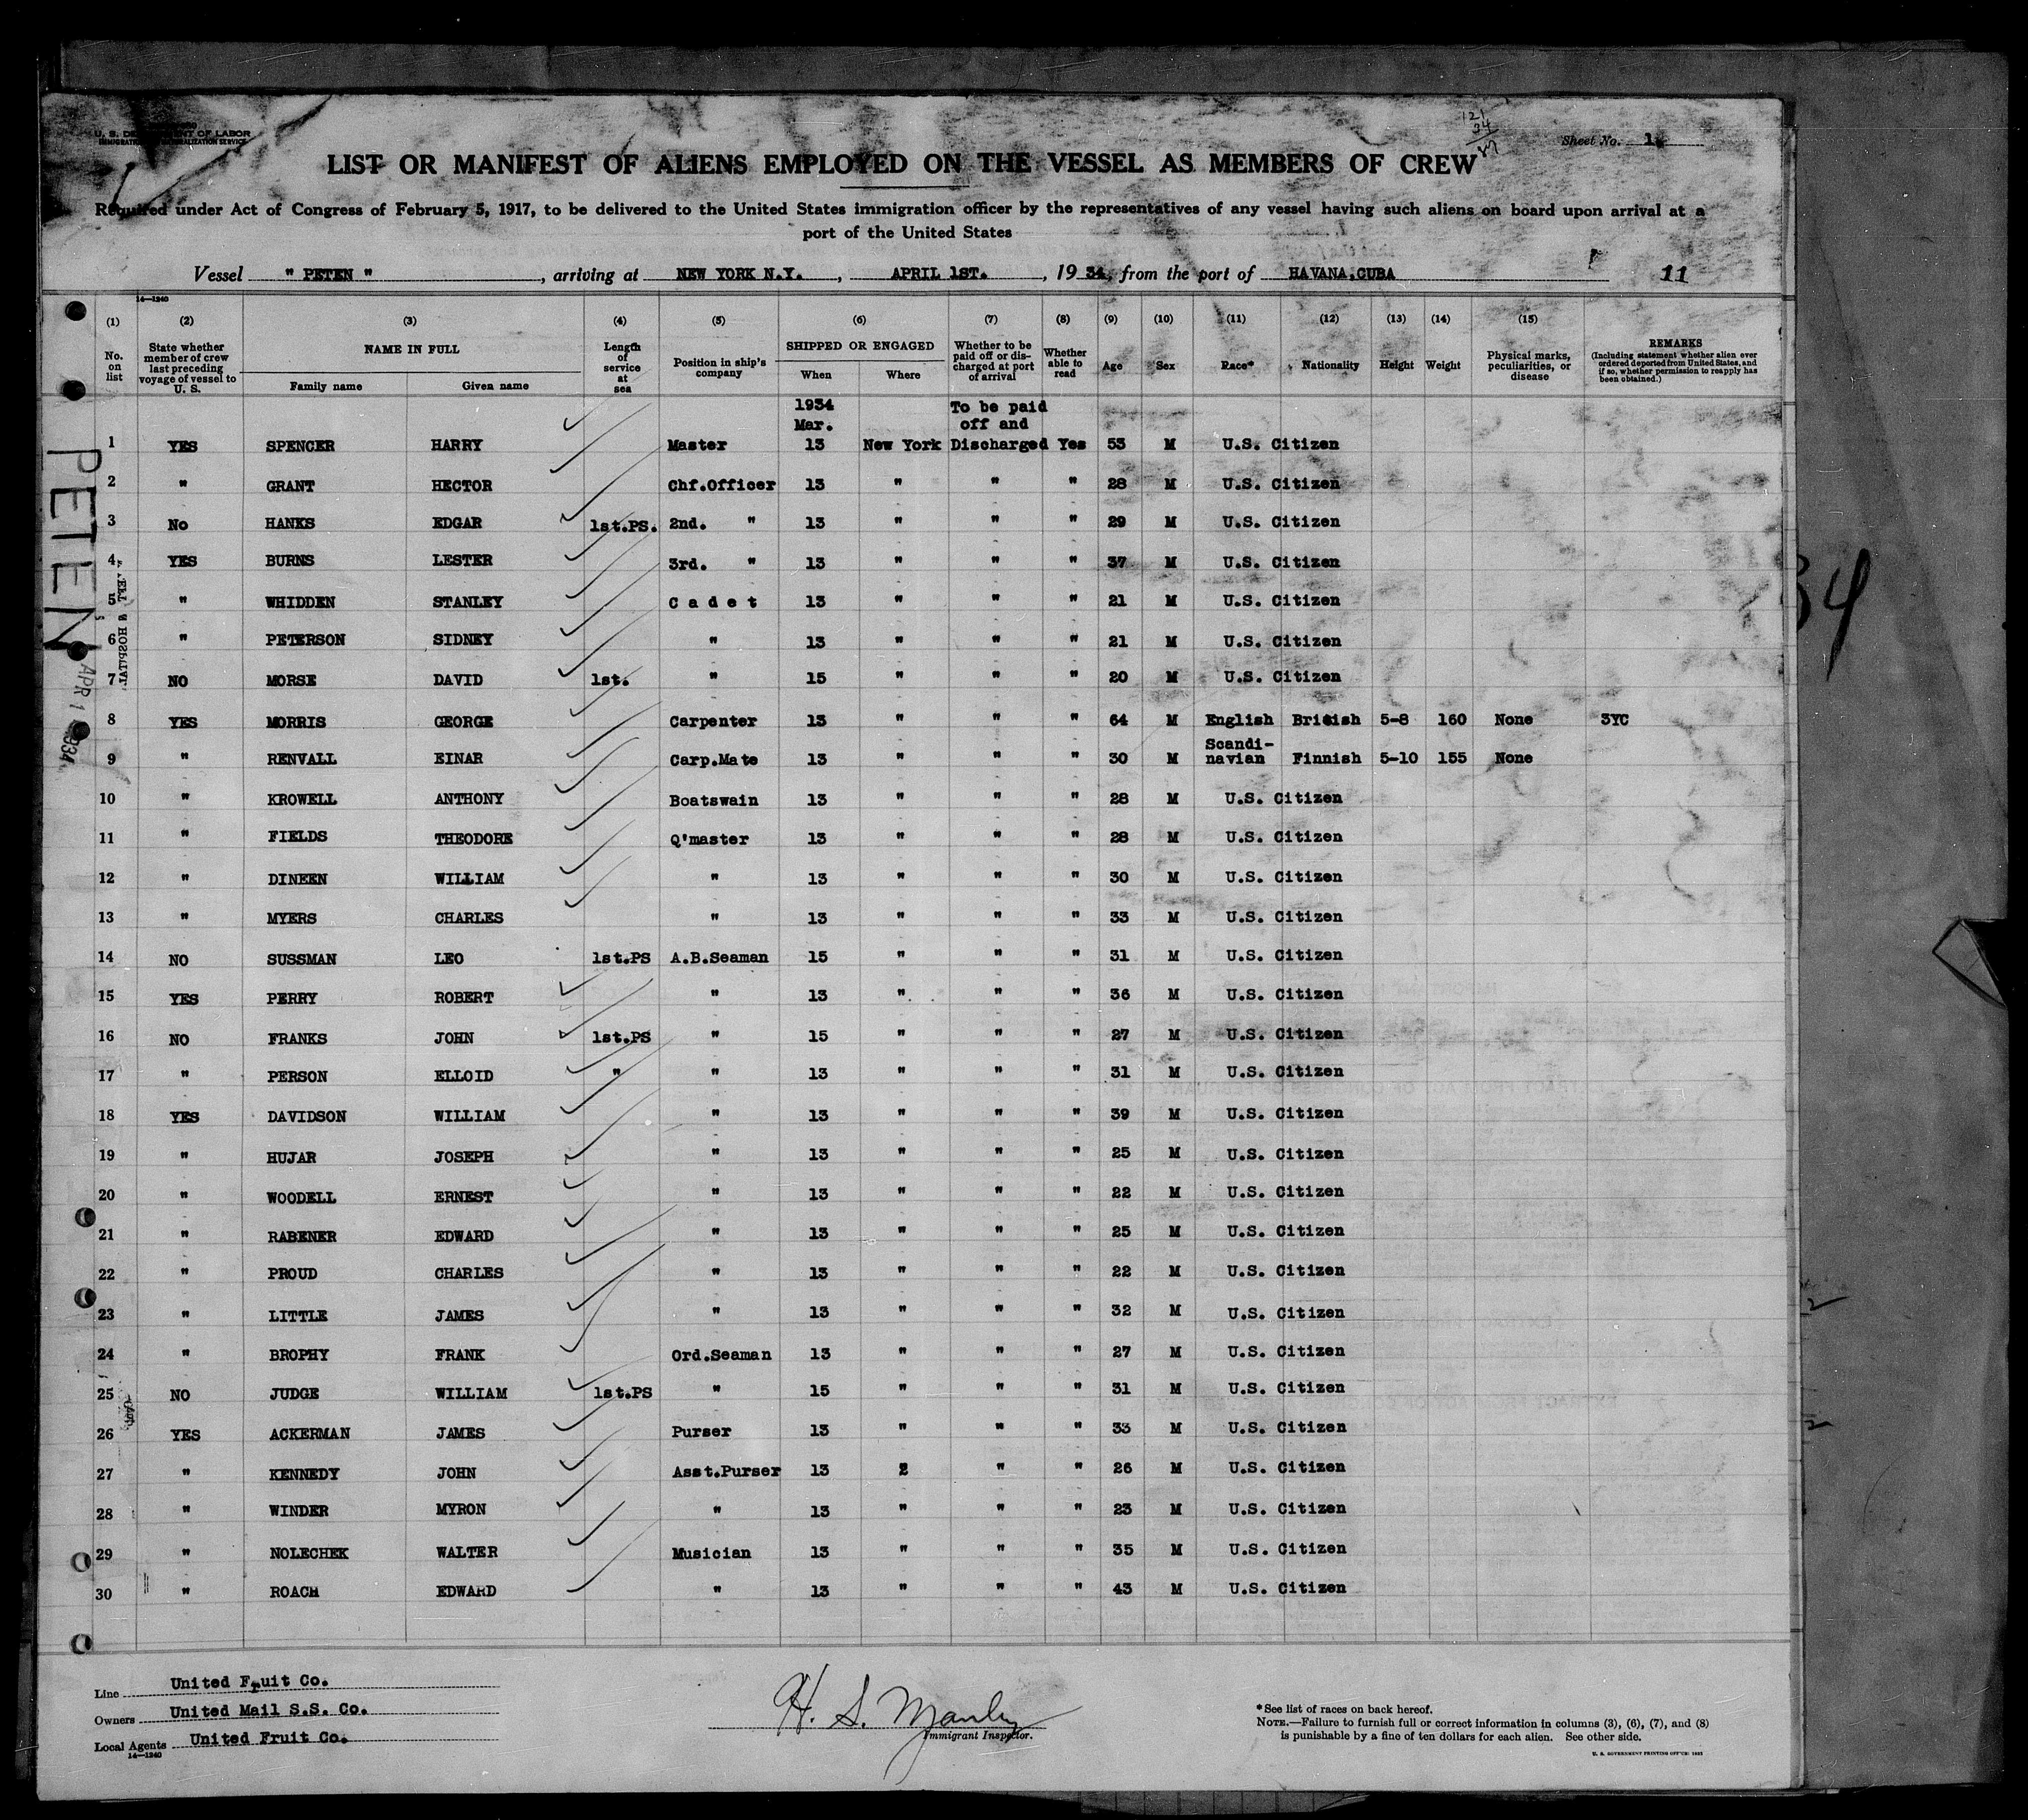 U. S. DEPARTMENT OF LABOR
IMMIGRATION AND NATURALIZATION SERVICE
121
34
Sheet No. 1
LIST OR MANIFEST OF ALIENS EMPLOYED ON THE VESSEL AS MEMBERS OF CREW
Required under Act of Congress of February 5, 1917, to be delivered to the United States immigration officer by the representatives of any vessel having such aliens on board upon arrival at a
port of the United States
Vessel " PETEN ", arriving at NEW YORK N.Y., APRIL 1ST., 1934, from the port of HAVANA.CUBA 11
14—1240
(1) (2) (3) (4) (5) (6) (7) (8) (9) (10) (11) (12) (13) (14) (15)
No. on list State whether member of crew last preceding voyage of vessel to U. S. NAME IN FULL Family name Given name Length of service at sea Position in ship's company SHIPPED OR ENGAGED When Where Whether to be paid off or discharged at port of arrival Whether able to read Age Sex Race* Nationality Height Weight Physical marks, peculiarities, or disease REMARKS (Including statement whether alien ever ordered deported from United States, and if so, whether permission to reapply has been obtained.)
1934 To be paid
Mar. off and
1 YES SPENCER HARRY Master 13 New York Discharged Yes 53 M U.S. Citizen
2 " GRANT HECTOR Chf.Officer 13 " " " 28 M U.S. Citizen
3 No HANKS EDGAR 1st.PS. 2nd. " 13 " " " 29 M U.S. Citizen
4 YES BURNS LESTER 3rd. " 13 " " " 37 M U.S. Citizen
5 " WHIDDEN STANLEY C a d e t 13 " " " 21 M U.S. Citizen
6 " PETERSON SIDNEY " 13 " " " 21 M U.S. Citizen
7 NO MORSE DAVID 1st. " 15 " " " 20 M U.S. Citizen
8 YES MORRIS GEORGE Carpenter 13 " " " 64 M English British 5-8 160 None 3YC
9 " RENVALL EINAR Carp.Mate 13 " " " 30 M Scandi-navian Finnish 5-10 155 None
10 " KROWELL ANTHONY Boatswain 13 " " " 28 M U.S. Citizen
11 " FIELDS THEODORE Q'master 13 " " " 28 M U.S. Citizen
12 " DINEEN WILLIAM " 13 " " " 30 M U.S. Citizen
13 " MYERS CHARLES " 13 " " " 33 M U.S. Citizen
14 NO SUSSMAN LEO 1st.PS A.B.Seaman 15 " " " 31 M U.S. Citizen
15 YES PERRY ROBERT " 13 " " " 36 M U.S. Citizen
16 NO FRANKS JOHN 1st.PS " 15 " " " 27 M U.S. Citizen
17 " PERSON ELLOID " " 13 " " " 31 M U.S. Citizen
18 YES DAVIDSON WILLIAM " 13 " " " 39 M U.S. Citizen
19 " HUJAR JOSEPH " 13 " " " 25 M U.S. Citizen
20 " WOODELL ERNEST " 13 " " " 22 M U.S. Citizen
21 " RABENER EDWARD " 13 " " " 25 M U.S. Citizen
22 " PROUD CHARLES " 13 " " " 22 M U.S. Citizen
23 " LITTLE JAMES " 13 " " " 32 M U.S. Citizen
24 " BROPHY FRANK Ord.Seaman 13 " " " 27 M U.S. Citizen
25 NO JUDGE WILLIAM 1st.PS " 15 " " " 31 M U.S. Citizen
26 YES ACKERMAN JAMES Purser 13 " " " 33 M U.S. Citizen
27 " KENNEDY JOHN Asst.Purser 13 2 " " 26 M U.S. Citizen
28 " WINDER MYRON " 13 " " " 23 M U.S. Citizen
29 " NOLECHEK WALTER Musician 13 " " " 35 M U.S. Citizen
30 " ROACH EDWARD " 13 " " " 43 M U.S. Citizen
PETEN
APR 1 1934
34
Line United Fruit Co.
Owners United Mail S.S. Co.
Local Agents United Fruit Co.
14—1240
H. S. Manley
Immigrant Inspector.
*See list of races on back hereof.
NOTE.—Failure to furnish full or correct information in columns (3), (6), (7), and (8)
is punishable by a fine of ten dollars for each alien. See other side.
U. S. GOVERNMENT PRINTING OFFICE: